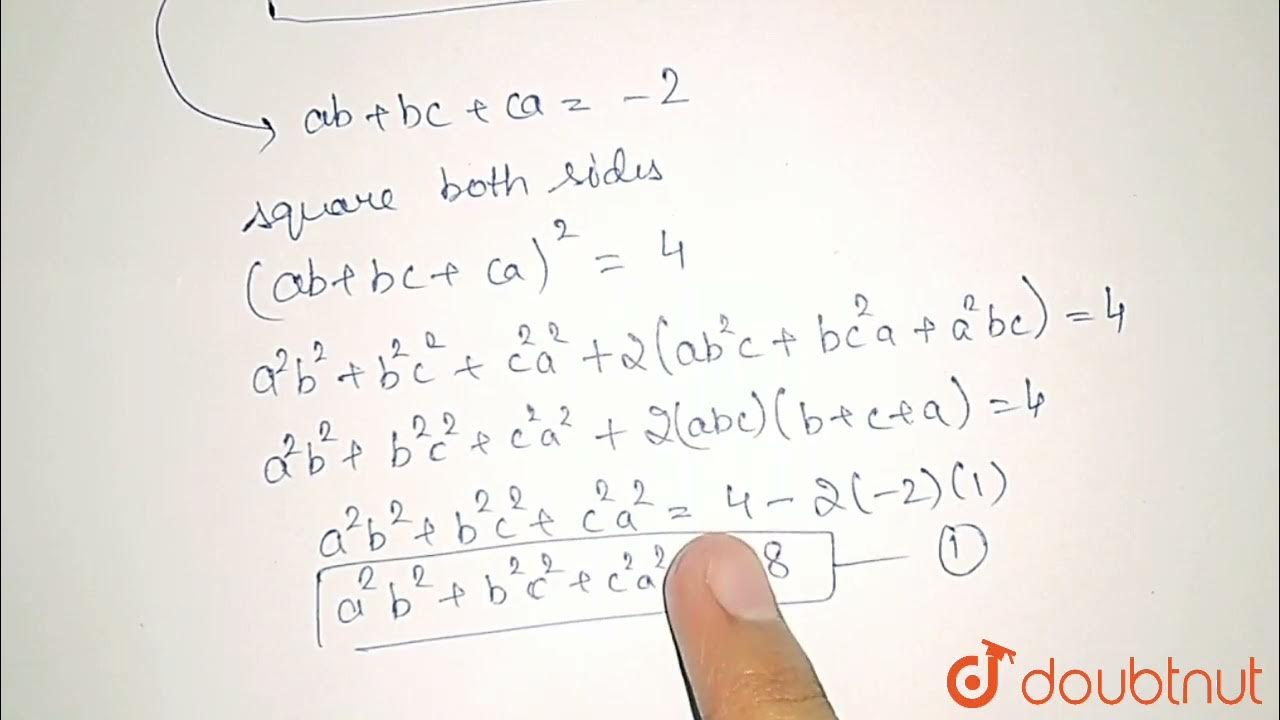 ab+bc+ca = -2
square both sides
(ab+bc+ca)² = 4
a²b²+b²c²+c²a²+2(ab²c+bc²a+a²bc)=4
a²b²+b²c²+c²a²+2(abc)(b+c+a)=4
a²b²+b²c²+c²a² = 4-2(-2)(1)
a²b²+b²c²+c²a² 8 — ①
doubtnut